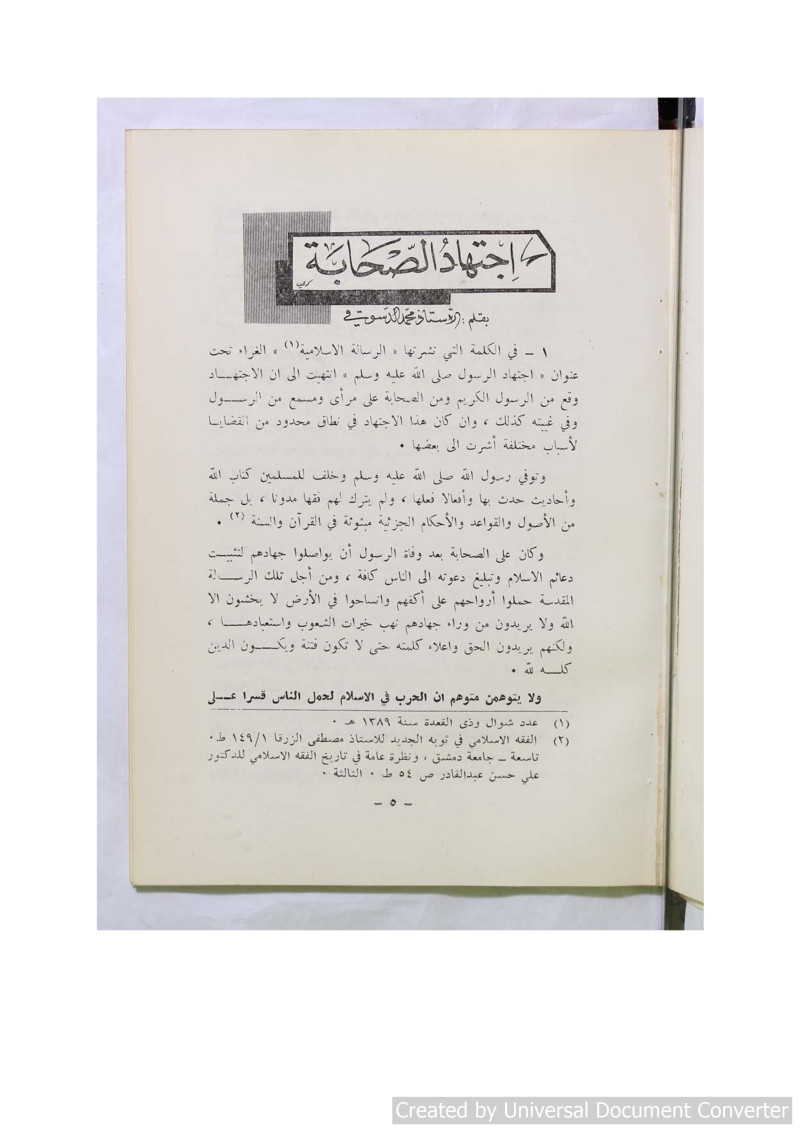 اِجتهادُ الصّحَابَة
بقلم : الأستاذ محمد الدسوقي
١ – في الكلمة التي نشرتها « الرسالة الاسلامية(١) » الغراء تحت
عنوان « اجتهاد الرسول صلى الله عليه وسلم » انتهيت الى ان الاجتهـــاد
وقع من الرسول الكريم ومن الصحابة على مرأى ومسمع من الرســـول
وفي غيبته كذلك ، وان كان هذا الاجتهاد في نطاق محدود من القضايـا
لأسباب مختلفة أشرت الى بعضها ٠
وتوفي رسول الله صلى الله عليه وسلم وخلف للمسلمين كتاب الله
وأحاديث حدث بها وأفعالا فعلها ، ولم يترك لهم فقها مدونا ، بل جملة
من الأصول والقواعد والأحكام الجزئية مبثوثة في القرآن والسنة (٢) ٠
وكان على الصحابة بعد وفاة الرسول أن يواصلوا جهادهم لتثبيـــت
دعائم الاسلام وتبليغ دعوته الى الناس كافة ، ومن أجل تلك الرســـالة
المقدسة حملوا أرواحهم على أكفهم وانساحوا في الأرض لا يخشون الا
الله ولا يريدون من وراء جهادهم نهب خيرات الشعوب واستعبادهـــا ،
ولكنهم يريدون الحق واعلاء كلمته حتى لا تكون فتنة ويكـــون الدين
كلـــه لله ٠
ولا يتوهمن متوهم ان الحرب في الاسلام لحمل الناس قسرا عـــلى
(١) عدد شوال وذى القعدة سنة ١٣٨٩ هـ ٠
(٢) الفقه الاسلامي في ثوبه الجديد للاستاذ مصطفى الزرقا ١٤٩/١ ط٠
تاسعة – جامعة دمشق ، ونظرة عامة في تاريخ الفقه الاسلامي للدكتور
علي حسن عبدالقادر ص ٥٤ ط ٠ الثالثة ٠
– ٥ –
Created by Universal Document Converter